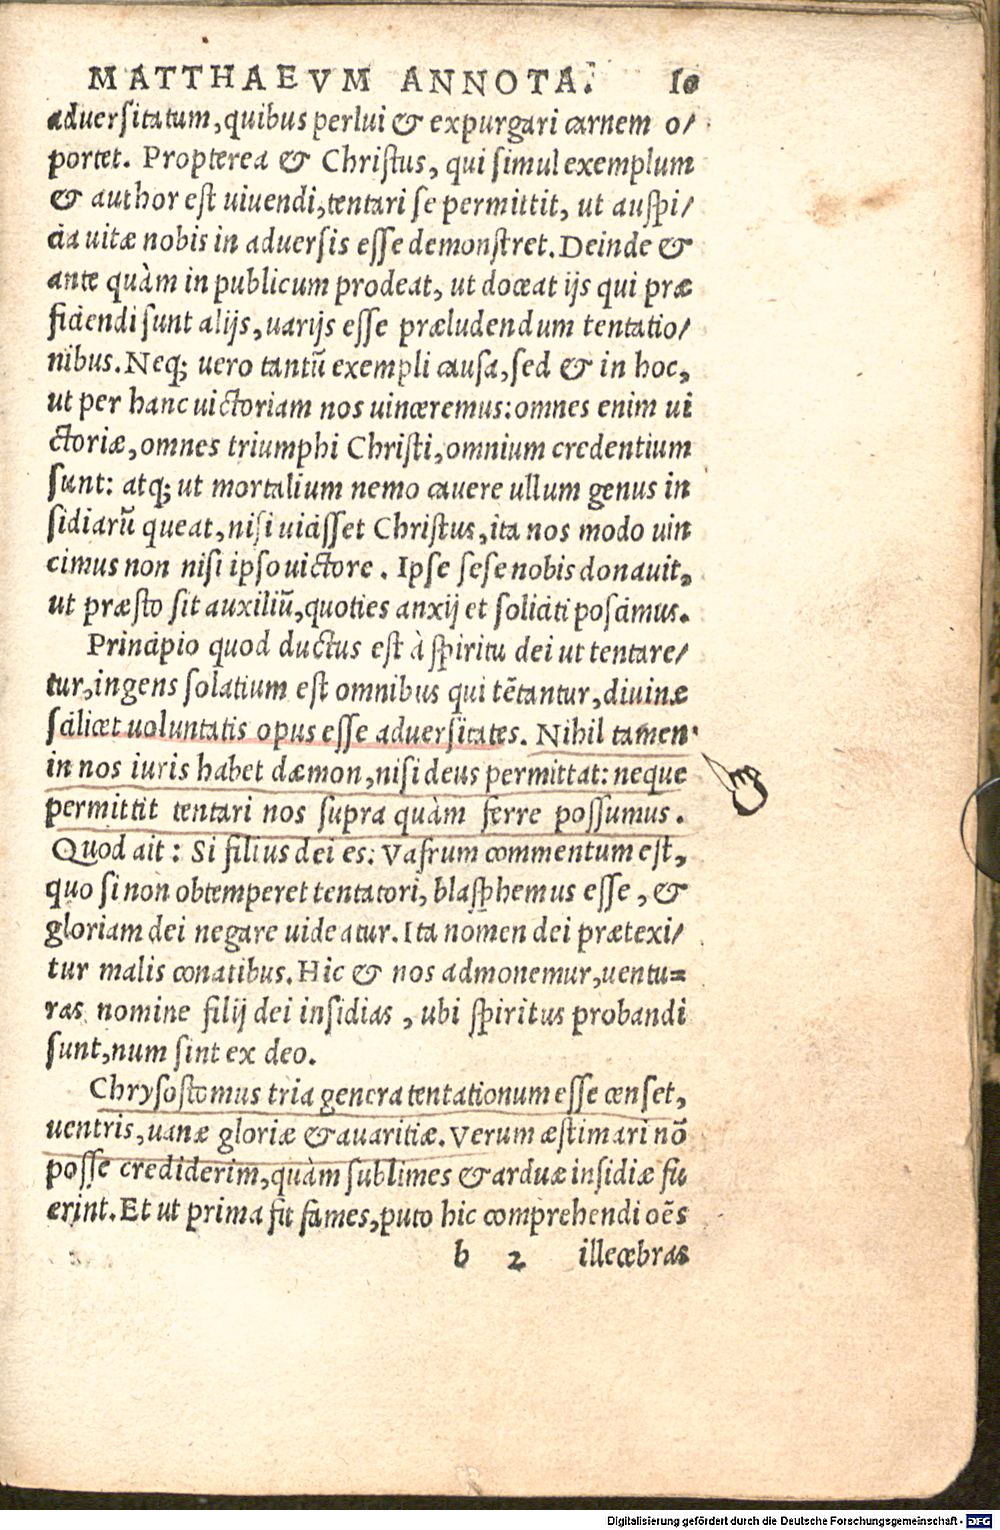 MATTHAEVM ANNOTA. 10
aduersitatum, quibus perlui & expurgari carnem o/
portet. Propterea & Christus, qui simul exemplum
& author est uiuendi, tentari se permittit, ut auspi/
cia uitæ nobis in aduersis esse demonstret. Deinde &
ante quàm in publicum prodeat, ut doceat ijs qui præ
ficiendi sunt alijs, uarijs esse præludendum tentatio/
nibus. Neq; uero tantũ exempli causa, sed & in hoc,
ut per hanc uictoriam nos uinceremus: omnes enim ui
ctoriæ, omnes triumphi Christi, omnium credentium
sunt: atq; ut mortalium nemo cauere ullum genus in
sidiarũ queat, nisi uicisset Christus, ita nos modo uin
cimus non nisi ipso uictore. Ipse sese nobis donauit,
ut præsto sit auxiliũ, quoties anxij et soliciti poscimus.
Principio quod ductus est à spiritu dei ut tentare/
tur, ingens solatium est omnibus qui tẽtantur, diuinæ
scilicet uoluntatis opus esse aduersitates. Nihil tamen
in nos iuris habet dæmon, nisi deus permittat: neque
permittit tentari nos supra quàm ferre possumus.
Quod ait: Si filius dei es: Vafrum commentum est,
quo si non obtemperet tentatori, blasphemus esse, &
gloriam dei negare uideatur. Ita nomen dei prætexi/
tur malis conatibus. Hic & nos admonemur, uentu=
ras nomine filij dei insidias, ubi spiritus probandi
sunt, num sint ex deo.
Chrysostomus tria genera tentationum esse censet,
uentris, uanæ gloriæ & auaritiæ. Verum æstimari nõ
posse crediderim, quàm sublimes & arduæ insidiæ fu
erint. Et ut prima fit fames, puto hic comprehendi oẽs
b 2 illecebras
Digitalisierung gefördert durch die Deutsche Forschungsgemeinschaft - DFG